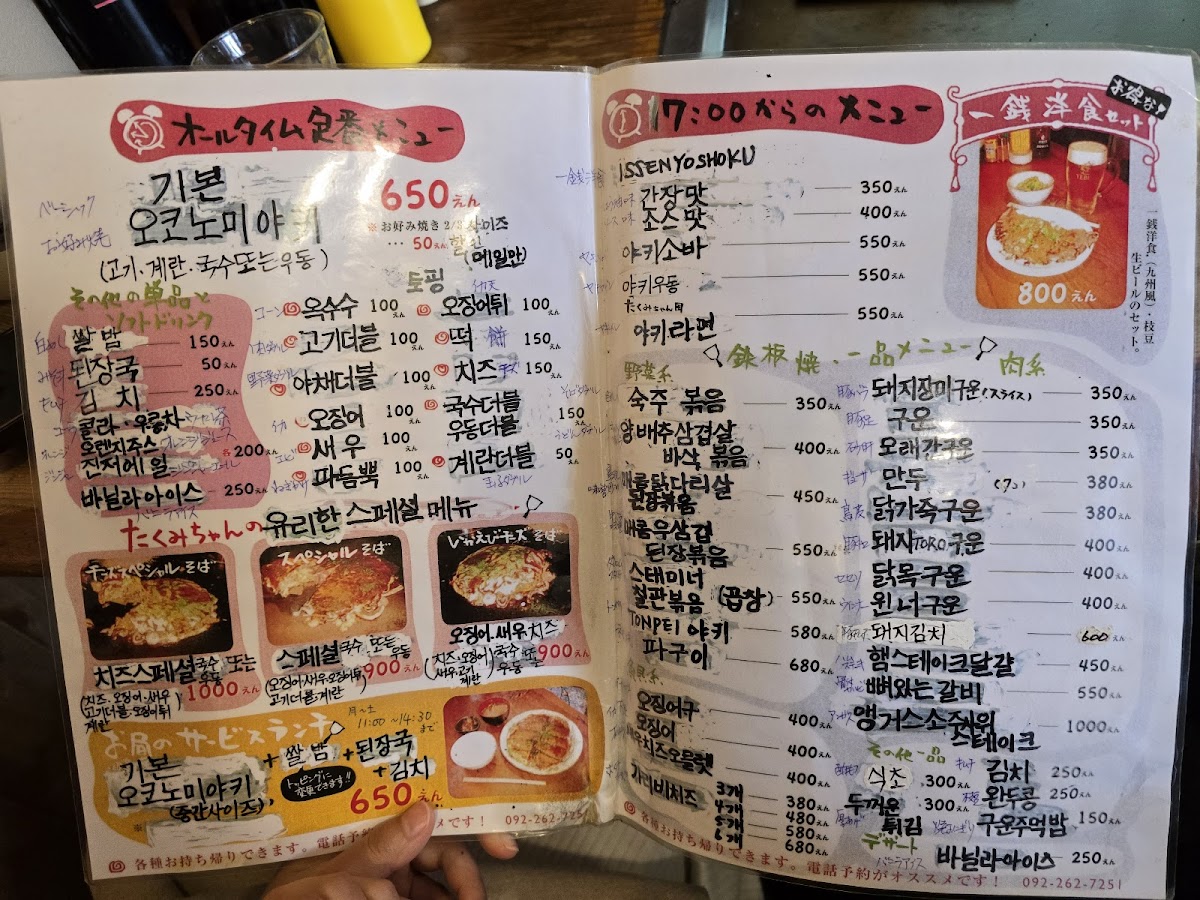 オールタイム定番メニュー
기본
오코노미야키
650えん
ベーシック
お好み焼
※お好み焼き 2/3 사이즈
… 50えん 할인
(메일만)
(고기·계란·국수또는우동)
その他の単品と
ソフトドリンク
쌀밥 150えん
된장국 50えん
김치 250えん
콜라·우롱차
오렌지주스 各200えん
진저에일
바닐라아이스 250えん
バニラアイス
토핑
コーン 옥수수 100えん
고기더블 100えん
야채더블 100えん
오징어 100えん
エビ 새우 100えん
파듬뿍 100えん
오징어튀 100えん
떡 餅 150えん
치즈 150えん
국수더블
우동더블 150えん
계란더블 50えん
たくみちゃんの유리한 스페셜 메뉴
チーズスペシャルそば
치즈스페셜국수 또는 우동
(치즈·오징어·새우
고기더블·오징어튀
계란)
1000えん
スペシャルそば
스페셜국수 또는 우동
(오징어·새우·오징어튀
고기더블·계란)
900えん
いかえびチーズそば
오징어·새우·치즈
(치즈·오징어
새우·고기
계란)
국수 또는 우동
900えん
お昼のサービスランチ
月〜土
11:00〜14:30まで
기본
오코노미야키
(중간사이즈)
+쌀밥 +된장국
+김치
トッピングに
変更できます!!
650えん
各種お持ち帰りできます。電話予約がオススメです! 092-262-7251
17:00からのメニュー
ISSENYOSHOKU
간장맛 350えん
소스맛 400えん
야키소바 550えん
야키우동 550えん
たくみちゃん風
야키라면 550えん
お得な!
一銭洋食セット
800えん
一銭洋食(九州風)・枝豆
生ビールのセット。
鉄板焼、一品メニュー
野菜系
숙주 볶음 350えん
양배추삼겹살
바삭 볶음 400えん
매콤닭다리살
된장볶음 450えん
매콤우삼겹
된장볶음 550えん
스태미너
철판볶음 (곱창) 550えん
TONPEI 야키 580えん
파구이 680えん
오징어구 400えん
오징어 400えん
새우치즈오믈렛 400えん
가리비치즈 3개 380えん
4개 480えん
5개 580えん
6개 680えん
肉系
돼지장미구운(スライス) 350えん
豚足 구운 350えん
모래간구운 350えん
만두 (7コ) 380えん
닭가죽구운 380えん
돼지TORO구운 400えん
닭목구운 400えん
윈너구운 400えん
돼지김치 600えん
햄스테이크달걀 450えん
뼈있는갈비 550えん
앵거스소주사위
스테이크 1000えん
その他一品
식초 300えん
두꺼운
튀김 300えん
김치 250えん
완두콩 250えん
구운주먹밥 150えん
デザート
バニラアイス 바닐라아이스 250えん
各種お持ち帰りできます。電話予約がオススメです! 092-262-7251